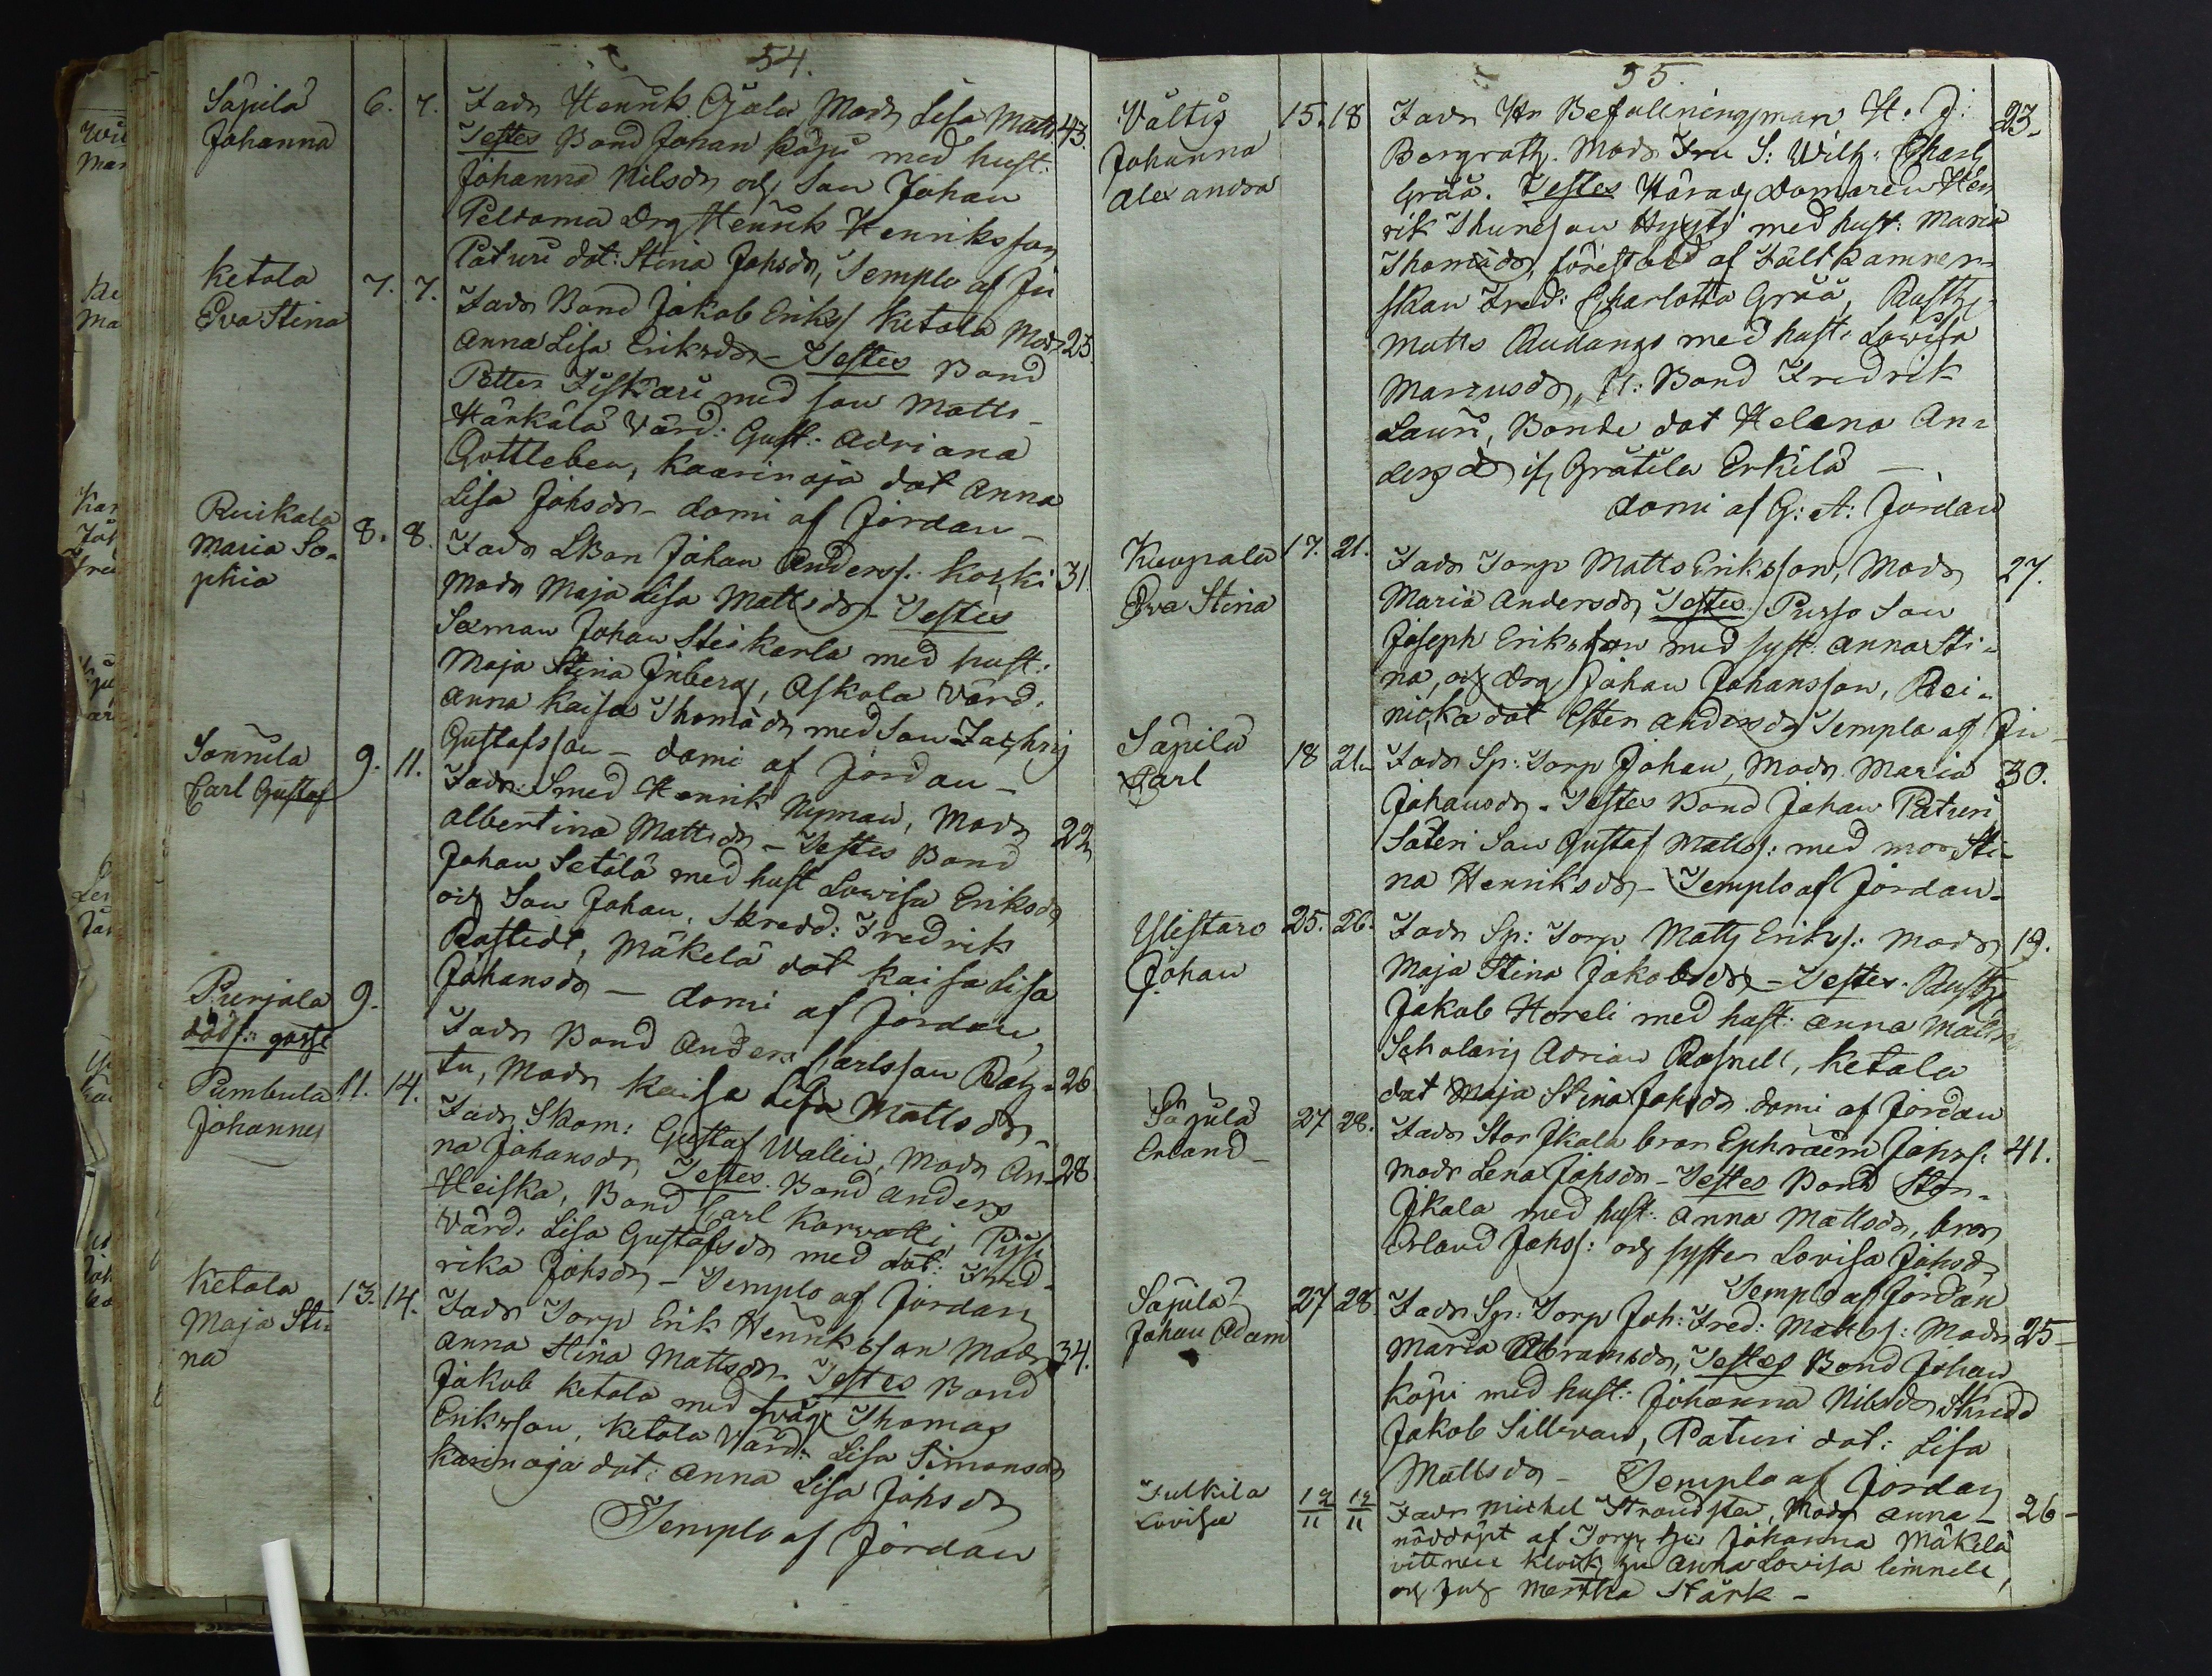 54.
Säpilä 6. 7. Fadr Henrik Gäla, Modr Lisa Matts 43.
Johanna Testes Bond Johan Käpi med hust:
Johanna Nilsdr och Son Johan
Peltoma Drg Henrik Henriksson
Paturi dot: Stina Johsdr, Templo af Ju
Ketola 7. 7. Fadr Bond Jakob Eriks Ketola Modr 25.
Eva Stina Anna Lisa Eriksdr - Testes Bond
Petter Fiskari med son Matts
Härkälä Värd: Gust: Adriana
Gottleben, Kaarinoja dot Anna
Lisa Johsdr - domi af Jordan -
Ruikala 8. 8. Fadr LBon Johan Anders: Koski 31
Maria So- Modr Maja Lisa Mattsdr - Testes
phia Soeman Johan Steikarla med hust:
Maja Stina Inberg, Askola Värd.
Anna Kaisa Thomädr med Son Zachris
Gustafsson - domi af Jordan -
Sonnila 9. 11. Fadr: Smed Henrik Nyman, Modr 22
Carl Gustaf Albertina Mattsdr - Testes Bond
Johan Setälä med hust Lowisa Eriksdr
och Son Johan, Skredd: Fredrik
Rastedt, Mäkelä dot Kaisa Lisa
Johansdr - domi af Jordan,
Purjala 9. Fadr Bond Anders Carlsson
dödf: gosse tu, Modr Kaisa Lisa Mattsdr - 26.
Pumbula 11. 14. Fadr Skom: Gustaf Wallin, Modr An- 28.
Johannes na Johansdr Testes. Bond Anders
Heiska, Bond Carl Korvalli,
Värd. Lisa Gustafsdr med dot: Fred-
rika Johsdr - Templo af Jordan
Ketola 13. 14. Fadr Torp Erik Henriksson Modr 34.
Maja Sti- Anna Stina Mattsdr. Testes Bond
na Jakob Ketola med Thomas
Eriksson, Ketola Värd: Lisa Simonsdr
Karinoja dot: Anna Lisa Johsdr
Templo af Jordan
55.
Valtis 15. 18 Fadr Hr Befallningsman H. J: 23.
Johanna Bergroth. Modr Fru S: Wilh: Charl
Alexandra Gråå. Testes Härads Domaren Hen
rik Thuresson Hyysti med hust: Maria
Thomädr, förestod af Fältkamrer-
skan Fred: Charlotta Gråå, Rusth:
Matts Audangs med hust: Lowisa
Marcusdr, H: Bond Fredrik
Lauri, Bonde dot Helena An-
dersdr if Grätila Erkilä -
domi af G: A: Jordan
Kuopala 17. 21. Fadr Torp Matts Eriksson, Modr 27.
Eva Stina Maria Andersdr Testes. Purso Son
Joseph Eriksson med syst: Anna Sti-
na, och Drg Johan Johansson, Rei-
nicka dot Ester Andersdr Templo af Ju
Säpilä 18 21. Fadr Sp: Torp Johan, Modr Maria 30.
Carl Johansdr - Testes Bond Johan Paturi
Säteri Son Gustaf Matts: med mor Sti-
na Henriksdr - Templo af Jordan -
Ylistaro 25. 26. Fadr Sp: Torp Matts Eriks: Modr 19.
Johan Maja Stina Jakobsdr - Testes. Rusth
Jakob Horeli med hust: Anna Matts
Scholaris Adrian Rosnell, Ketola
dot Maja Stina Johsdr domi af Jordan
Säpilä 27 28. Fadr Stor Ikala bror Ephraim Johs: 41.
Erland - Modr Lena Johsdr - Testes Bond Stor-
Ikala med hust: Anna Mattsdr, bror
Erland Johs: och syster Lovisa Johsdr
Templo af Jordan
Säpilä 27 28. Fadr Sp: Torp Joh: Fred: Matts: Modr 25 -
Johan Adam Maria Abramsdr, Testes Bond Johan
Käpi med hust: Johanna Nilsdr Skredd
Jakob Sillvan, Paturi dot: Lisa
Mattsdr - Templo af Jordan
Sulkila 12/11 12/11 Fadr Michel Strandsta, Modr Anna - 26 -
Lovisa nöddöpt af Torp hu Johanna Mäkelä
vittnen Klock hu Anna Lovisa Limnell,
och Inh Mertha Stärk -